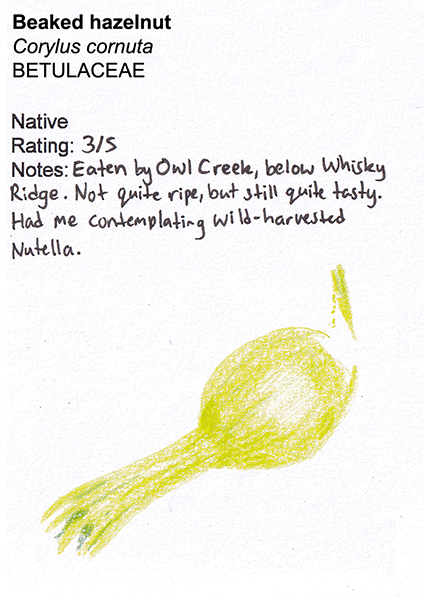 Beaked hazelnut
Corylus cornuta
BETULACEAE
Native
Rating: 3/5
Notes: Eaten by Owl Creek, below Whisky
Ridge. Not quite ripe, but still quite tasty.
Had me contemplating wild-harvested
Nutella.